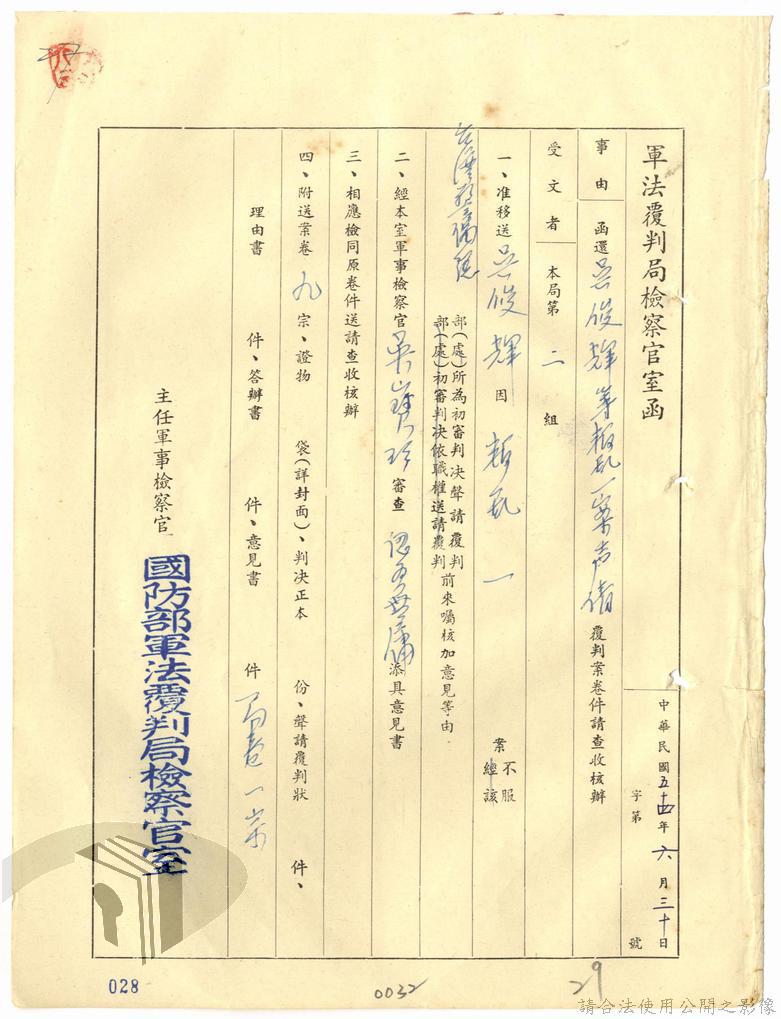 軍法覆判局檢察官室函
中華民國五十四年六月三十日
字第 號
事由 函還吳俊輝等叛乱一案声請覆判案卷件請查收核辦
受文者 本局第二組
一、准移送吳俊輝因叛乱一案不服經該
台灣警備總部(處)所為初審判決聲請覆判部(處)初審判決依職權送請覆判前來囑核加意見等由
二、經本室軍事檢察官吳寶珍審查認為無庸添具意見書
三、相應檢同原卷件送請查收核辦
四、附送案卷九宗、證物 袋(詳封面)、判決正本 份、聲請覆判狀 件、
理由書 件、答辯書 件、意見書 件 局卷一宗
主任軍事檢察官
國防部軍法覆判局檢察官室
028
0032
29
請合法使用公開之影像